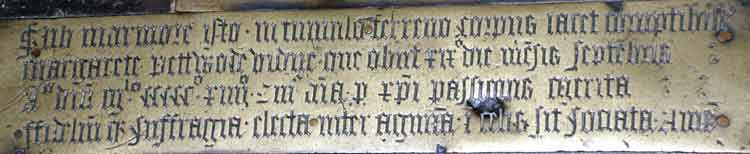 Sub marmore isto · in tumulo terreno corpus iacet corruptibile
margarete pettwode vidue que obiit xxº die mēsis septēbris
Aº dñi mº cccccº xiiijº · aīa p xpi passionis merita
ffideliū qȝ suffragia · electa inter agmina · i celis sit sociata Amē